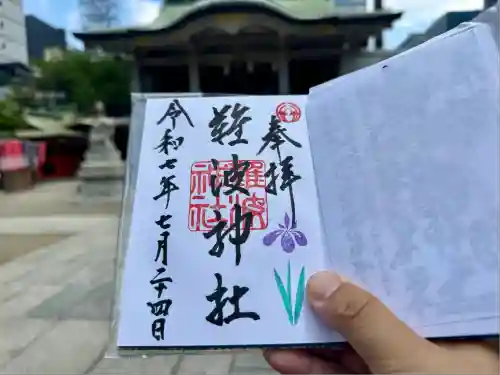 奉拝
難波神社
難波
神社
令和七年七月二十四日